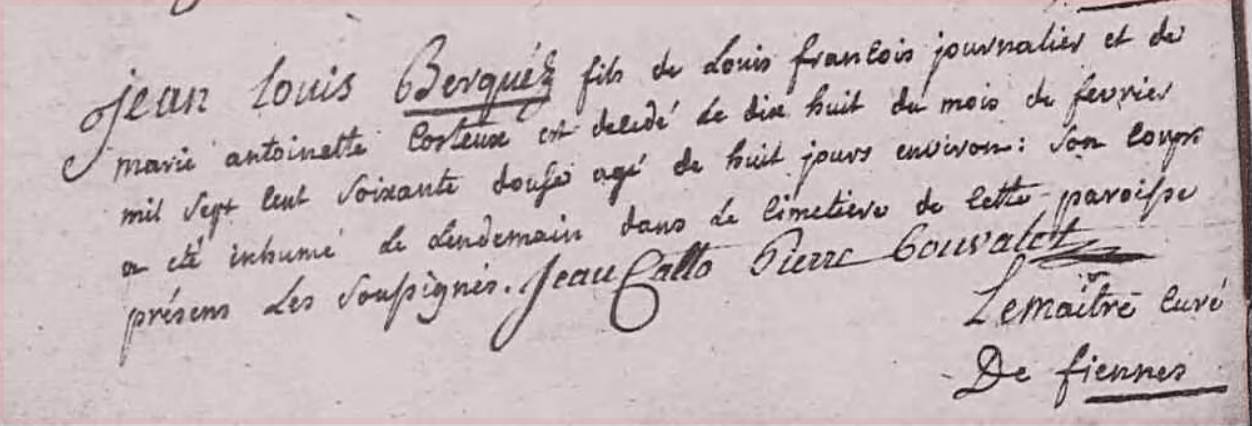 jean louis Berquéz fils de Louis francois journalier et de
marie antoinette Corteuse est decedé le dix huit du mois de fevrier
mil sept cent soixante douse agé de huit jours environ: son corps
a été inhumé le lendemain dans le cimetiere de cette paroisse
présens les soussignés. Jean Pierre
Lemaître curé
De fiennes